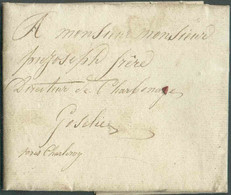 A monsieur monsieur
joseph frère
Directeur de Charbonage
Goselies
près Charleroy